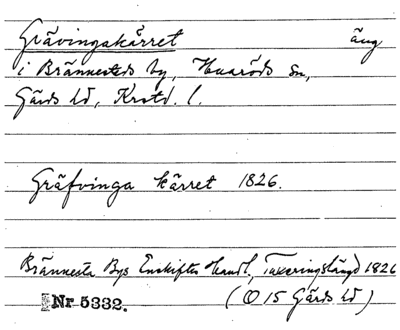 Grävingakärret äng
i Brännestads by, Huaröds sn,
Gärds hd, Krstd. l.
Gräfvinga kärret 1826.
Brännesta Bys Enskiftes Handl., Taxeringslängd 1826
Nr 5332. (O 15 Gärds hd)